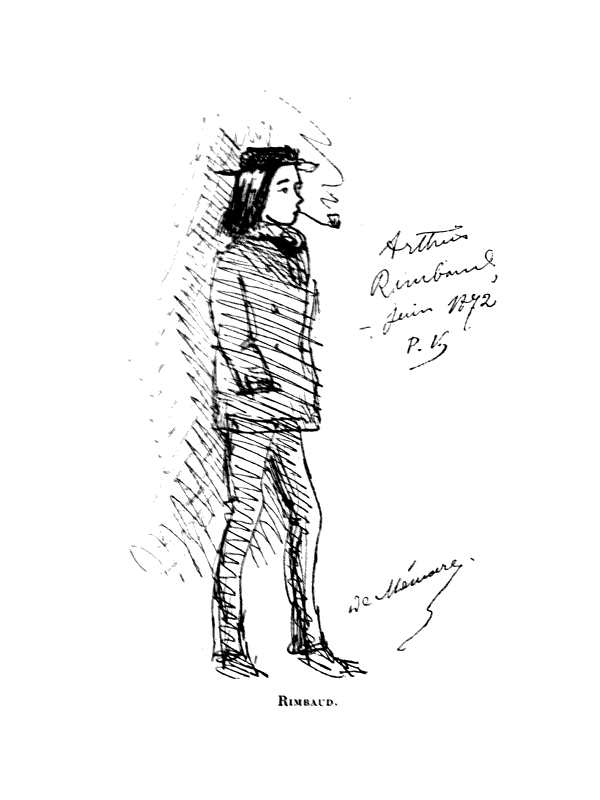 Arthur
Rimbaud,
- Juin 1872
P. V.
De Mémoire.
RIMBAUD.